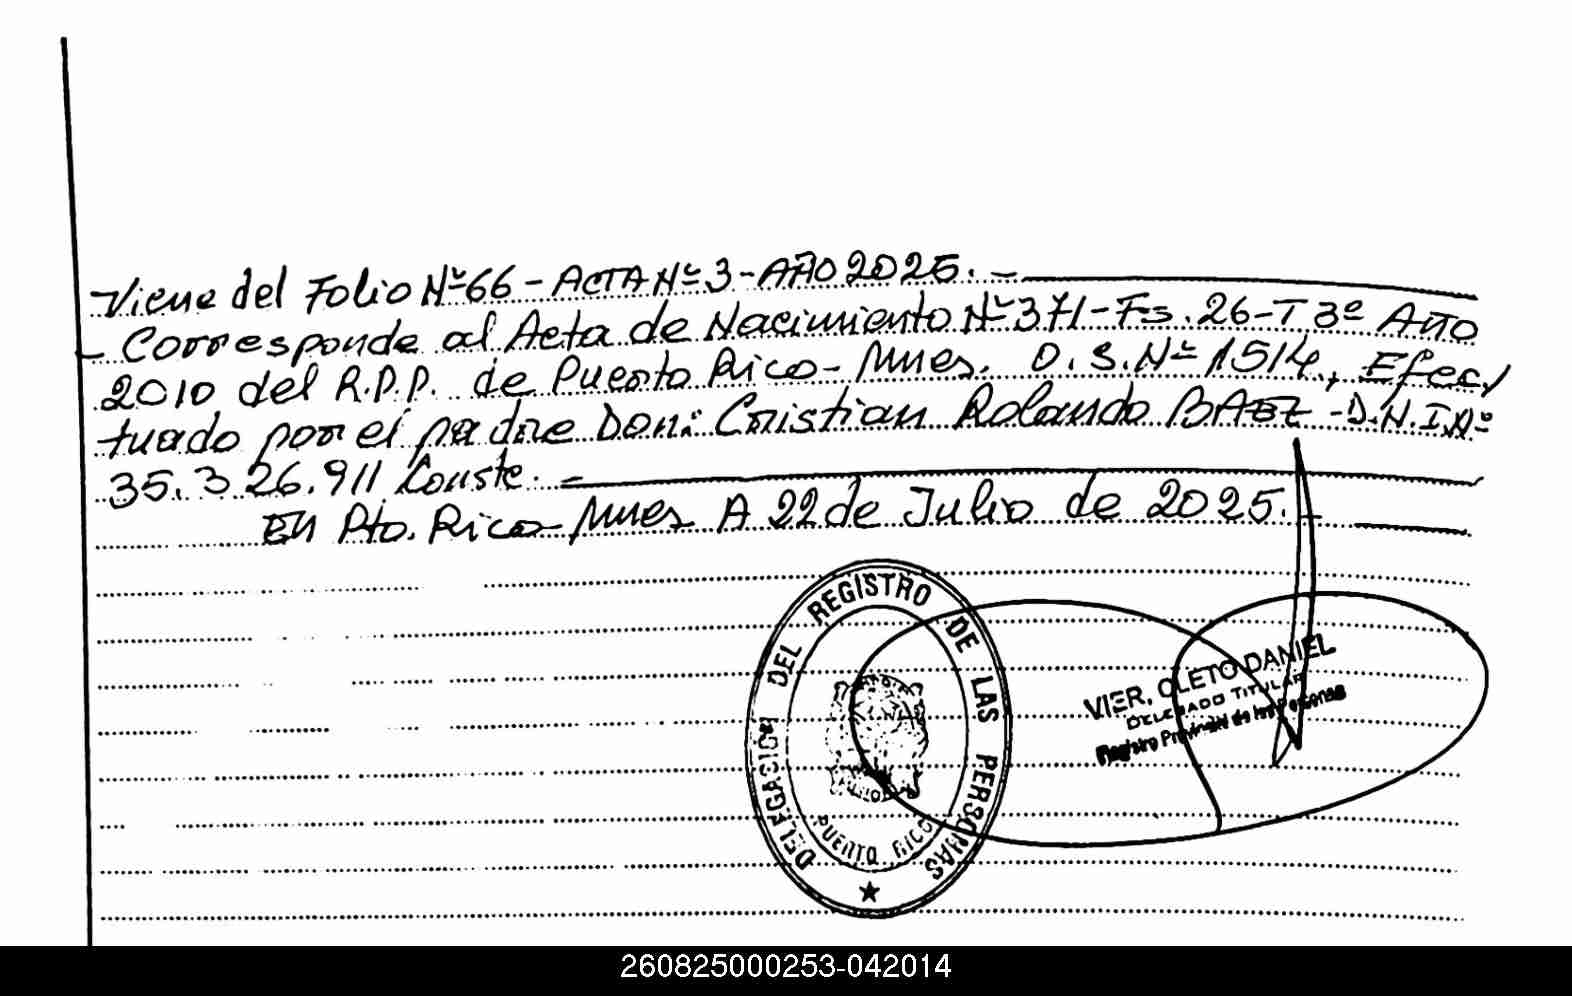 Viene del Folio Nº66 - ACTA Nº 3 - AÑO 2025. -
- Corresponde al Acta de Nacimiento Nº 371 - Fs. 26 - T 3º Año
2010 del R.P.P. de Puerto Rico - Mnes. O.S. Nº 1514, Efec,
tuado por el padre Don: Cristian Rolando BAEZ - D.N.I Nº
35.326.911 Conste. -
EN Pto. Rico - Mnes A 22 de Julio de 2025. -
DELEGACION DEL REGISTRO DE LAS PERSONAS
PUERTO RICO
VIER, CLETO DANIEL
DELEGADO TITULAR
Registro Provincial de las Personas
260825000253-042014